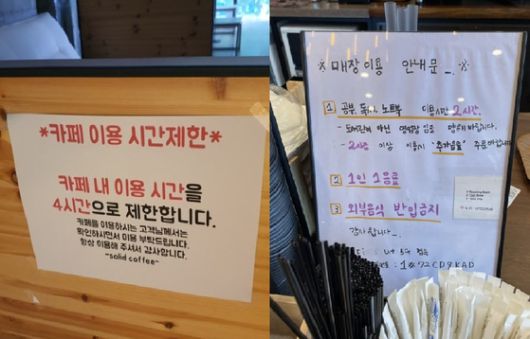 *카페 이용 시간제한*
카페 내 이용 시간을
4시간으로 제한합니다.
카페를 이용하시는 고객님께서는
확인하시면서 이용 부탁드립니다.
항상 이용해 주셔서 감사합니다.
~solid coffee~
※ 매장이용 안내문 _.. ※
1 공부, 노트북 이용시간 2시간.
- 2시간 이상 이용시 "추가음료" 주문
2 1인 1음료
3 외부음식 반입금지
감사합니다 -